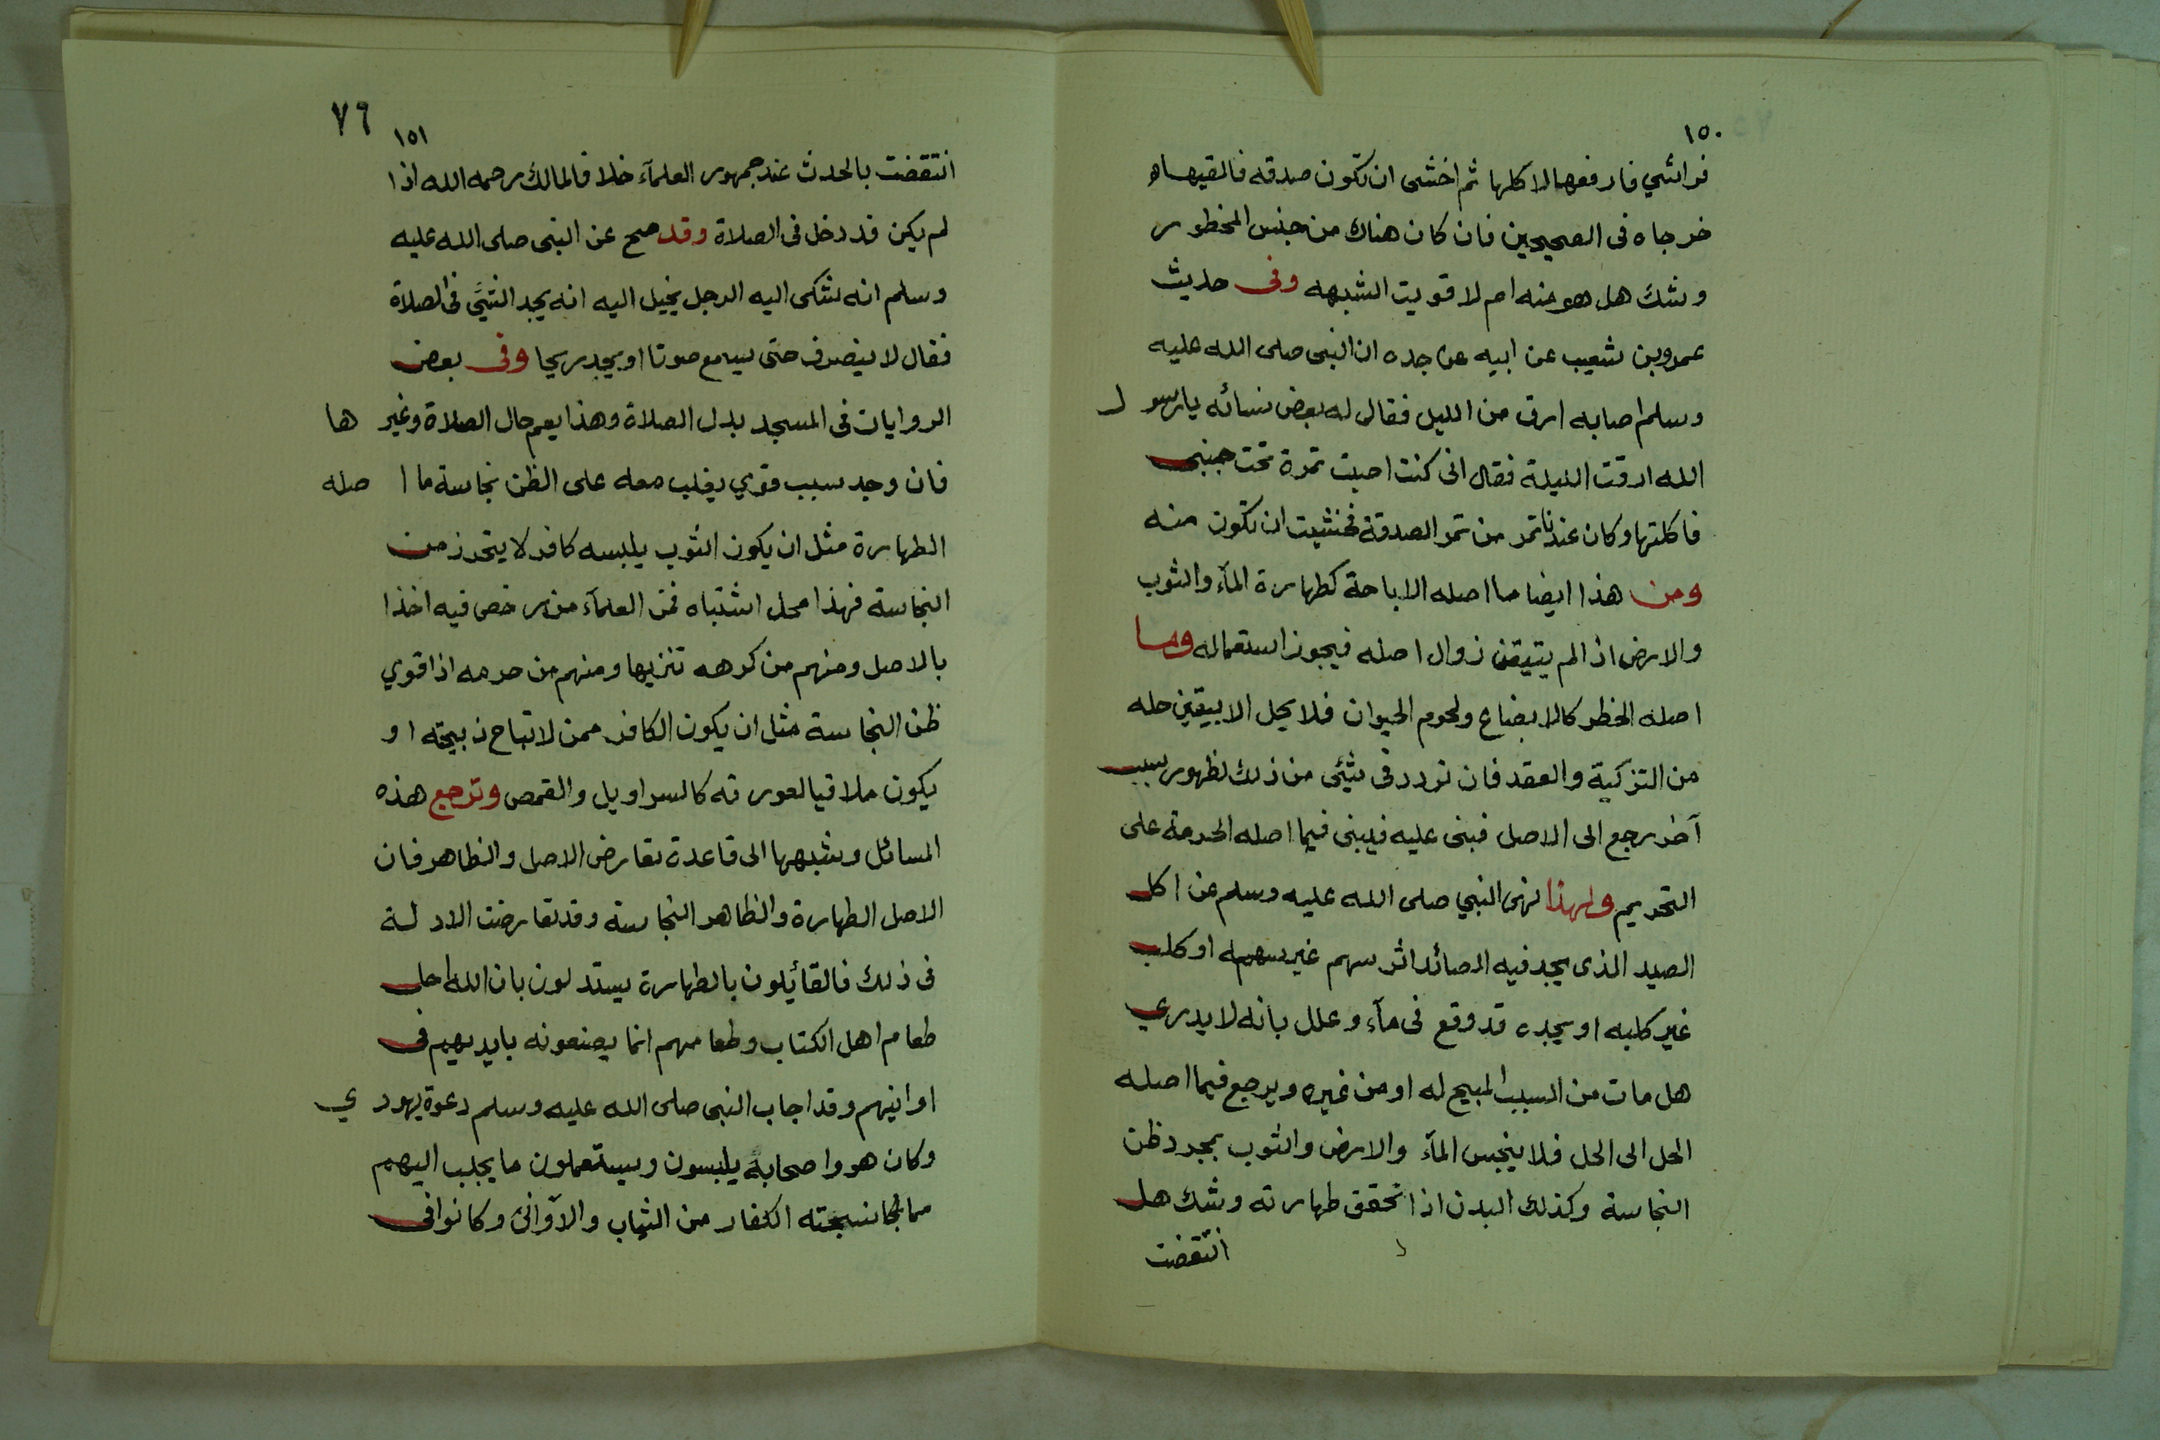 ١٥٠
فرائشي فارفعها لاكلها ثم اخشى ان تكون صدقه فالقيها
خرجاه فى الصحيحين فان كان هناك من جنس المخطور
وشك هل هو منه ام لا قويت الشبهه وفى حديث
عمرو بن شعيب عن ابيه عن جده ان النبى صلى الله عليه
وسلم اصابه ارق من الليل فقال له بعض نسائه يا رسول
الله ارقت الليلة فقال انى كنت اصبت تمرة تحت جنبى
فاكلتها وكان عندنا تمر من تمر الصدقة فخشيت ان تكون منه
ومن هذا ايضا ما اصله الاباحة كطهارة المآء والثوب
والارض اذا لم يتيقن زوال اصله فيجوز استعماله وما
اصله الخطر كالابضاع ولحوم الحيوان فلا يحل الا بيقين حله
من التزكية والعقد فان تردد فى شئى من ذلك لظهور سبب
آخر رجع الى الاصل فبنى عليه فيبنى فيما اصله الحرمة على
التحريم ولهذا نهى النبي صلى الله عليه وسلم عن اكل
الصيد الذى يجد فيه الصائد اثر سهم غير سهمه او كلب
غير كلبه او يجده قد وقع فى مآء وعلل بانه لا يدري
هل مات من السبب المبيح له او من غيره ويرجع فيما اصله
الحل الى الحل فلا ينجس المآء والارض والثوب بمجرد ظن
النجاسة وكذلك البدن اذا تحقق طهارته وشك هل
انتقضت
٧٦
١٥١
انتقضت بالحدث عند جمهور العلمآء خلافا لمالك رحمه الله اذا
لم يكن قد دخل فى الصلاة وقد صح عن النبى صلى الله عليه
وسلم انه شكى اليه الرجل يخيل اليه انه يجد الشئ فى الصلاة
فقال لا ينصرف حتى يسمع صوتا او يجد ريحا وفى بعض
الروايات فى المسجد بدل الصلاة وهذا يعم حال الصلاة وغيرها
فان وجد سبب قوي يغلب معه على الظن نجاسة ما اصله
الطهارة مثل ان يكون الثوب يلبسه كافر لا يتحرز من
النجاسة فهذا محل اشتباه فمن العلمآء من رخص فيه اخذا
بالاصل ومنهم من كرهه تنزيها ومنهم من حرمه اذا قوي
ظن النجاسة مثل ان يكون الكافر ممن لا تباح ذبيحته او
يكون ملاقيا لعورته كالسراويل والقمص وترجع هذه
المسائل وشبهها الى قاعدة تعارض الاصل والظاهر فان
الاصل الطهارة والظاهر النجاسة وقد تعارضت الادلة
فى ذلك فالقائلون بالطهارة يستدلون بان الله احل
طعام اهل الكتاب وطعامهم انما يصنعونه بايديهم فى
اوانيهم وقد اجاب النبى صلى الله عليه وسلم دعوة يهودي
وكان هو واصحابه يلبسون ويستعملون ما يجلب اليهم
مما نسجته الكفار من الثياب والآوانى وكانوا فى